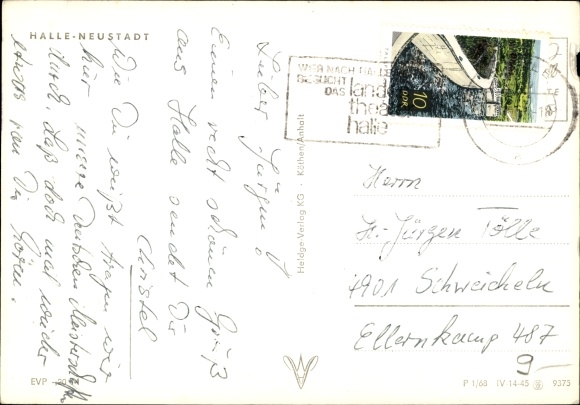 HALLE-NEUSTADT
Lieber Jürgen!
Einen recht schönen Gruß
aus Halle sendet Dir
Christel
Wie Du weißt tragen wir
hier unsere Deutschen Meisterschaften
Laß doch mal wieder
etwas von Dir hören.
EVP
Heldge Verlag KG · Köthen/Anhalt
WER NACH HALLE
BESUCHT
DAS landes
theater
halle
10
DDR
18
Herrn
H.-Jürgen Tölle
4901 Schweicheln
Ellernkamp 487
9
P 1/68 IV-14-45 9373